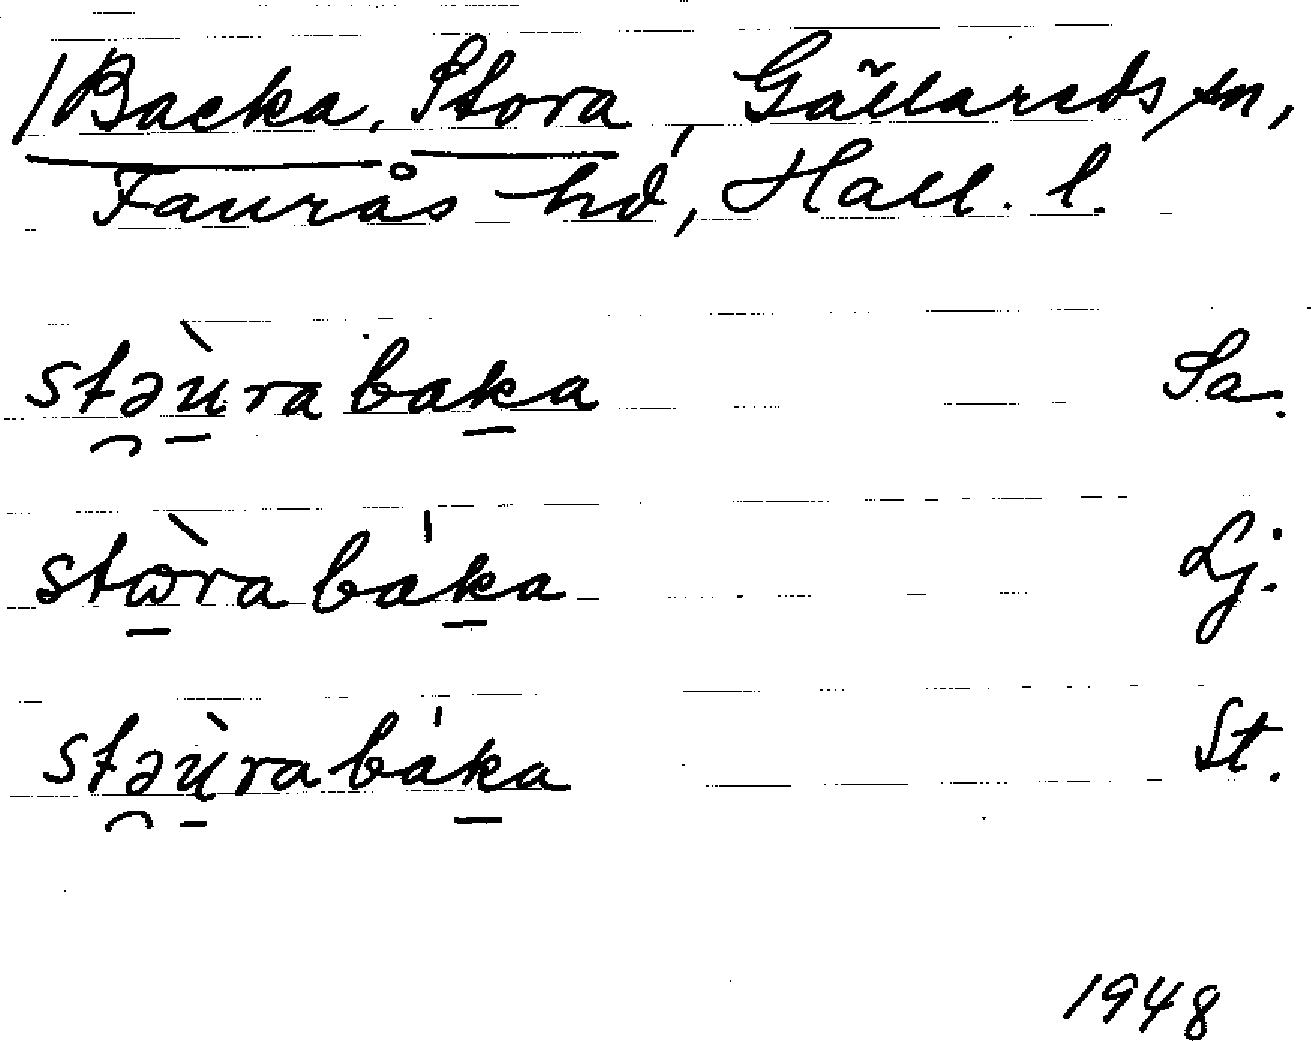 /Backa, Stora, Gällareds sn,
Faurås hd, Hall. l.
stə̯ù̱rabaḵa Sa.
stὼ̱rabáḵa Lj.
stə̯ù̱rabáḵa St.
1948